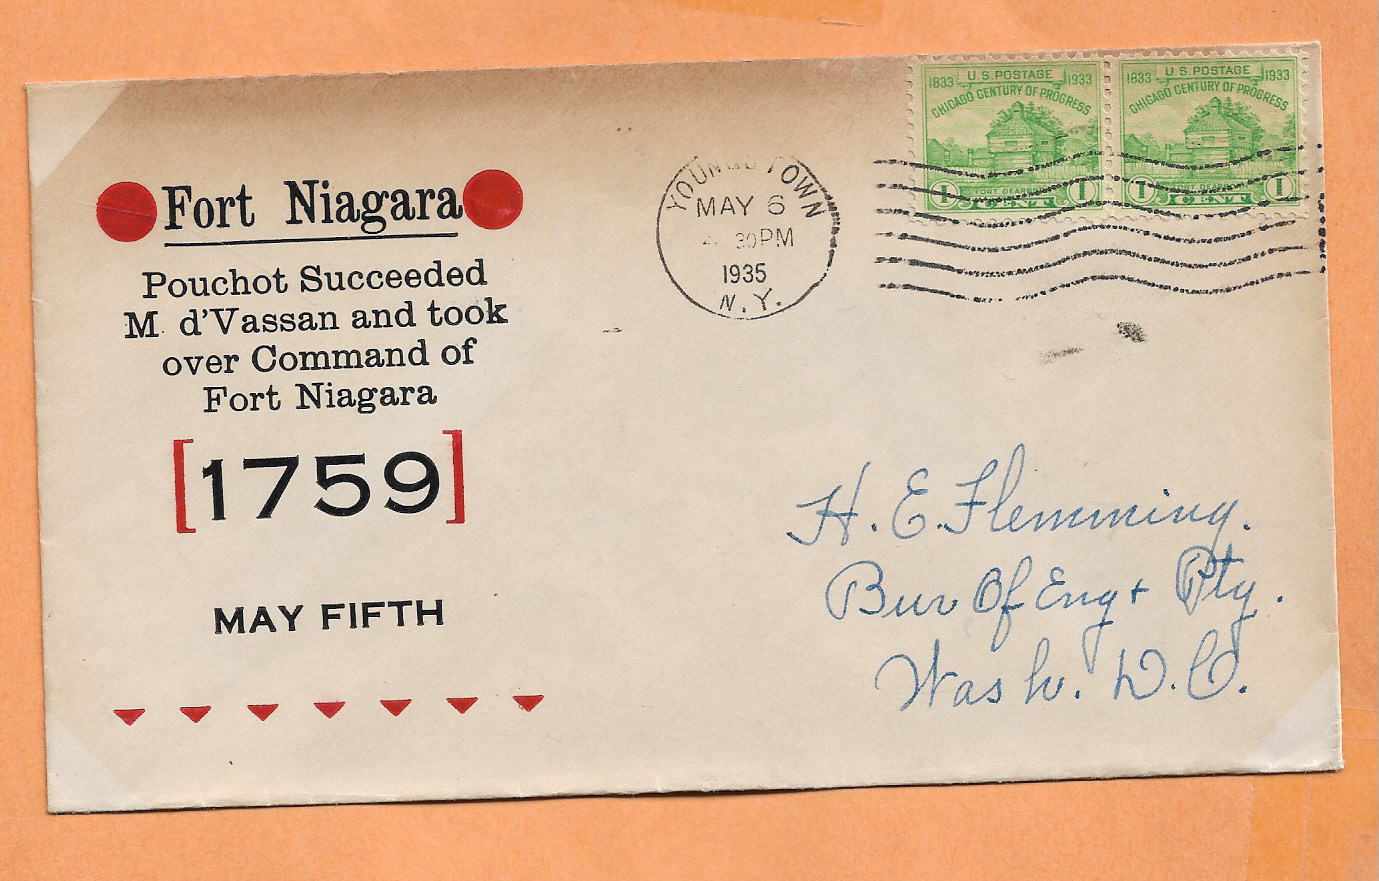 Fort Niagara
Pouchot Succeeded
M. d'Vassan and took
over Command of
Fort Niagara
[1759]
MAY FIFTH
YOUNGSTOWN
MAY 6
30 PM
1935
N.Y.
1833 U.S. POSTAGE 1933
CHICAGO CENTURY OF PROGRESS
FORT DEARBORN
1 CENT 1
1833 U.S. POSTAGE 1933
CHICAGO CENTURY OF PROGRESS
FORT DEARBORN
1 CENT 1
H. E. Flemming.
Bur Of Eng + Ptg.
Wash. D.C.